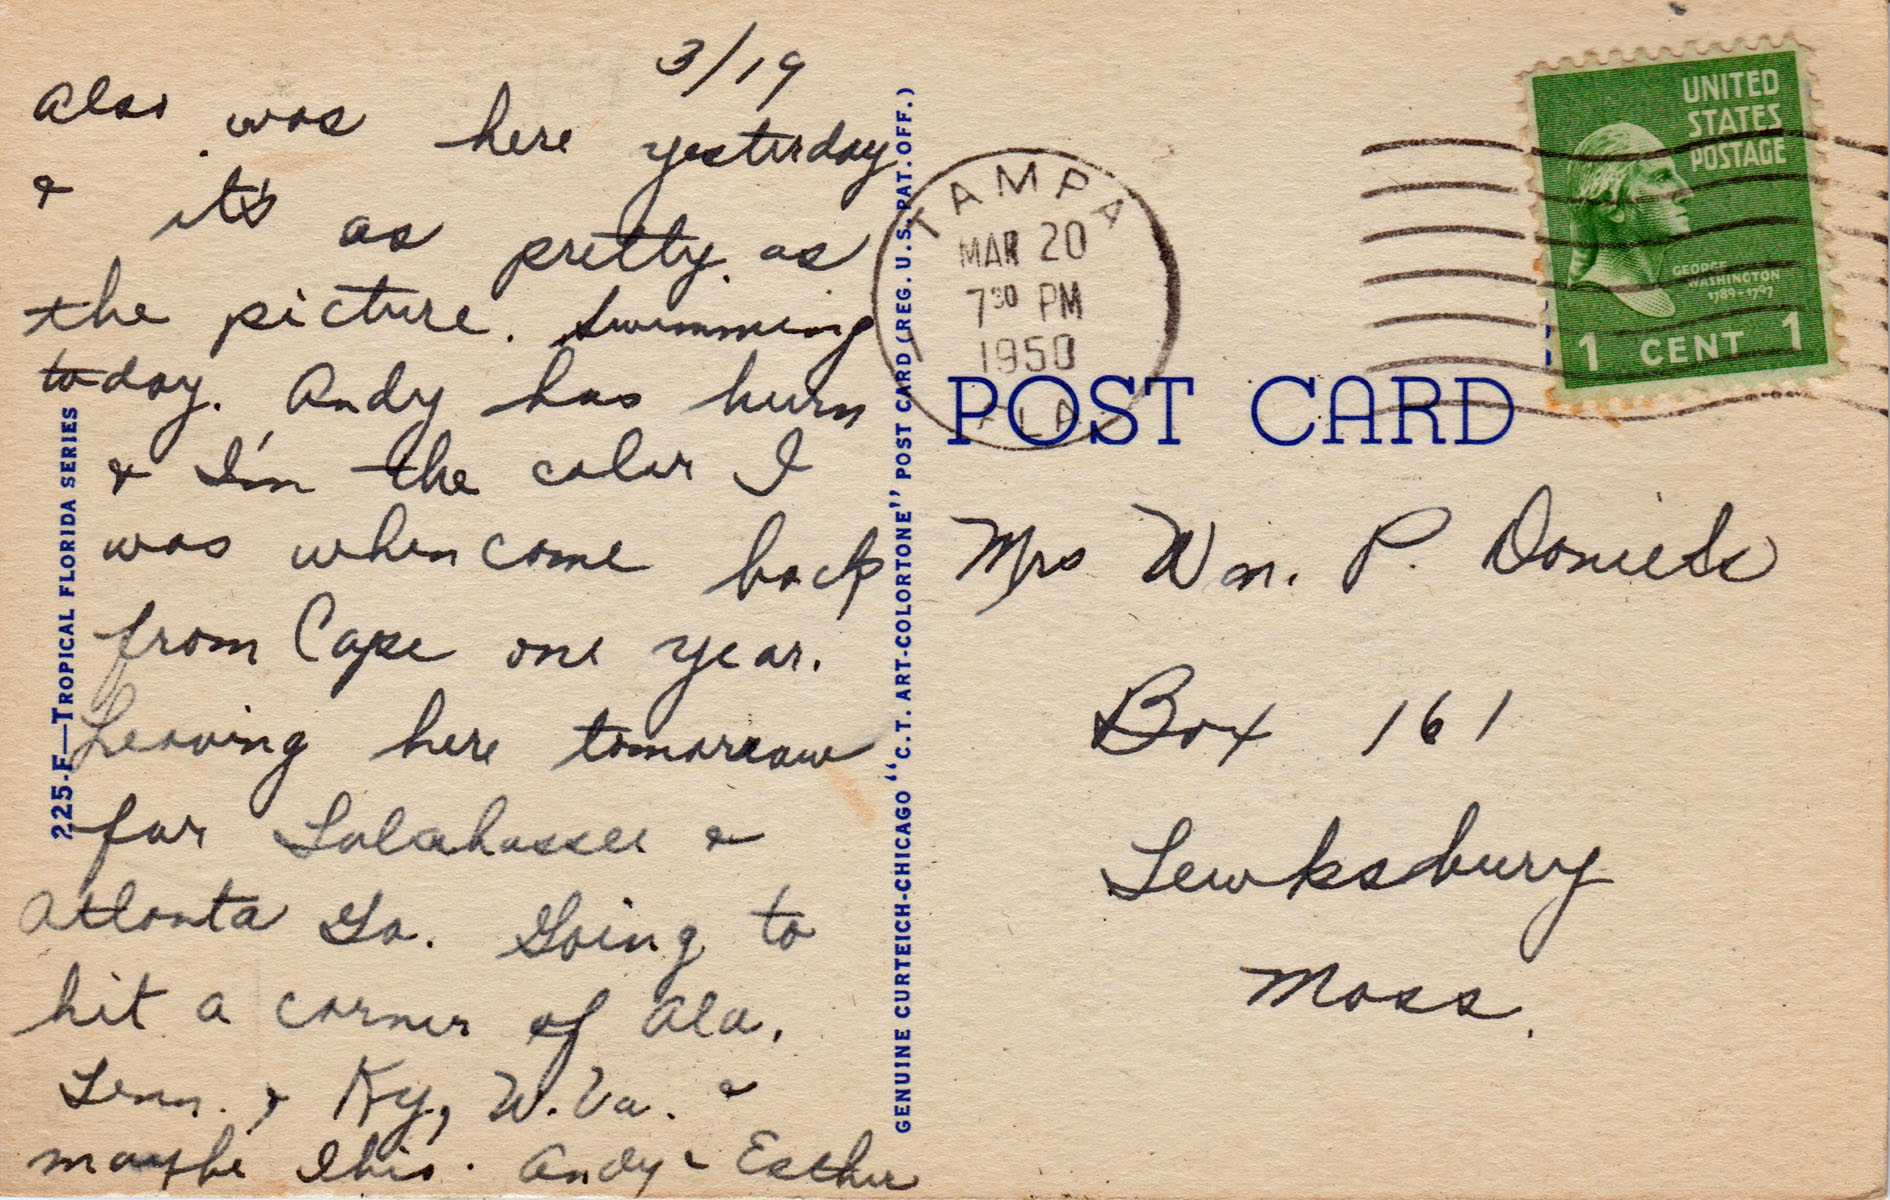 3/19
Also was here yesterday
& it's as pretty as
the picture. Swimming
today. Andy has burn
& I'm the color I
was when come back
from Cape one year.
Leaving here tomorrow
for Talahassee &
Atlanta Ga. Going to
hit a corner of Ala,
Tenn. & Ky, W. Va. &
maybe Ohio. Andy & Esther
225-F—TROPICAL FLORIDA SERIES
GENUINE CURTEICH-CHICAGO "C.T. ART-COLORTONE" POST CARD (REG. U.S. PAT. OFF.)
TAMPA
MAR 20
7 30 PM
1950
FLA.
UNITED
STATES
POSTAGE
GEORGE
WASHINGTON
1789-1797
1 CENT 1
POST CARD
Mrs Wm. P. Daniels
Box 161
Tewksbury
Mass.